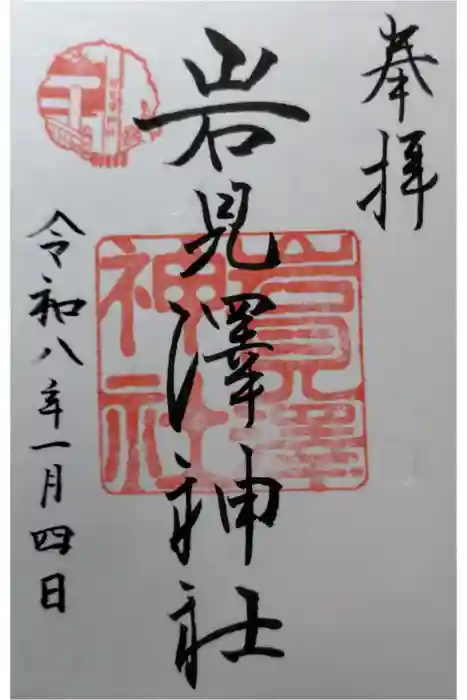 奉拝
岩見澤神社
岩見澤
神社
令和八年一月四日